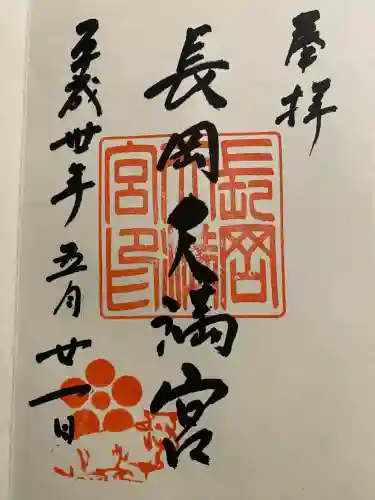 奉拝
長岡天満宮
長岡天満宮印
平成卅年五月廿一日